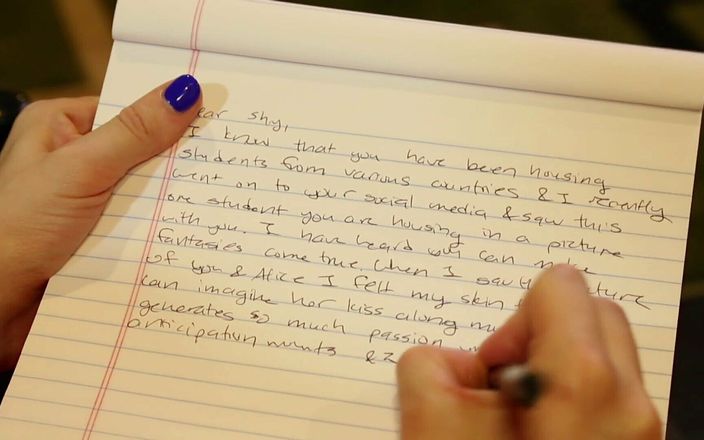 ear Shy,
I know that you have been housing
students from various countries & I recently
went on to your social media & saw this
one student you are housing in a picture
with you. I have heard can
fantasies come true. When I saw ture
of you & Alice I felt my skin
can imagine her kiss along m
generates so much passion
anticipation &